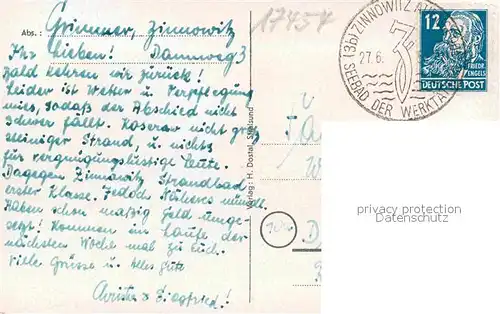 Abs.: Grimmer, Zinnowitz
Dannweg 3
Ihr Lieben!
Bald kehren wir zurück!
Leider ist Wetter u. Verpflegung
mies, sodaß der Abschied nicht
schwer fällt. Koserow nicht groß
steiniger Strand, u. nichts
für vergnügungslustige Leute.
Dagegen Zinnowitz Strandbad
erster Klasse. Jedoch Näheres mündl.
Haben schon mäßig Geld umge-
setzt! Kommen im Laufe der
nächsten Woche mal zu Euch.
Viele Grüsse u. Alles Gute
Siegfried!
Verlag: H. Dostal, Stralsund
17454
(36) ZINNOWITZ AUF
27.6.
SEEBAD DER WERKTÄ
12
FRIEDR. ENGELS
DEUTSCHE POST
privacy protection
Datenschutz